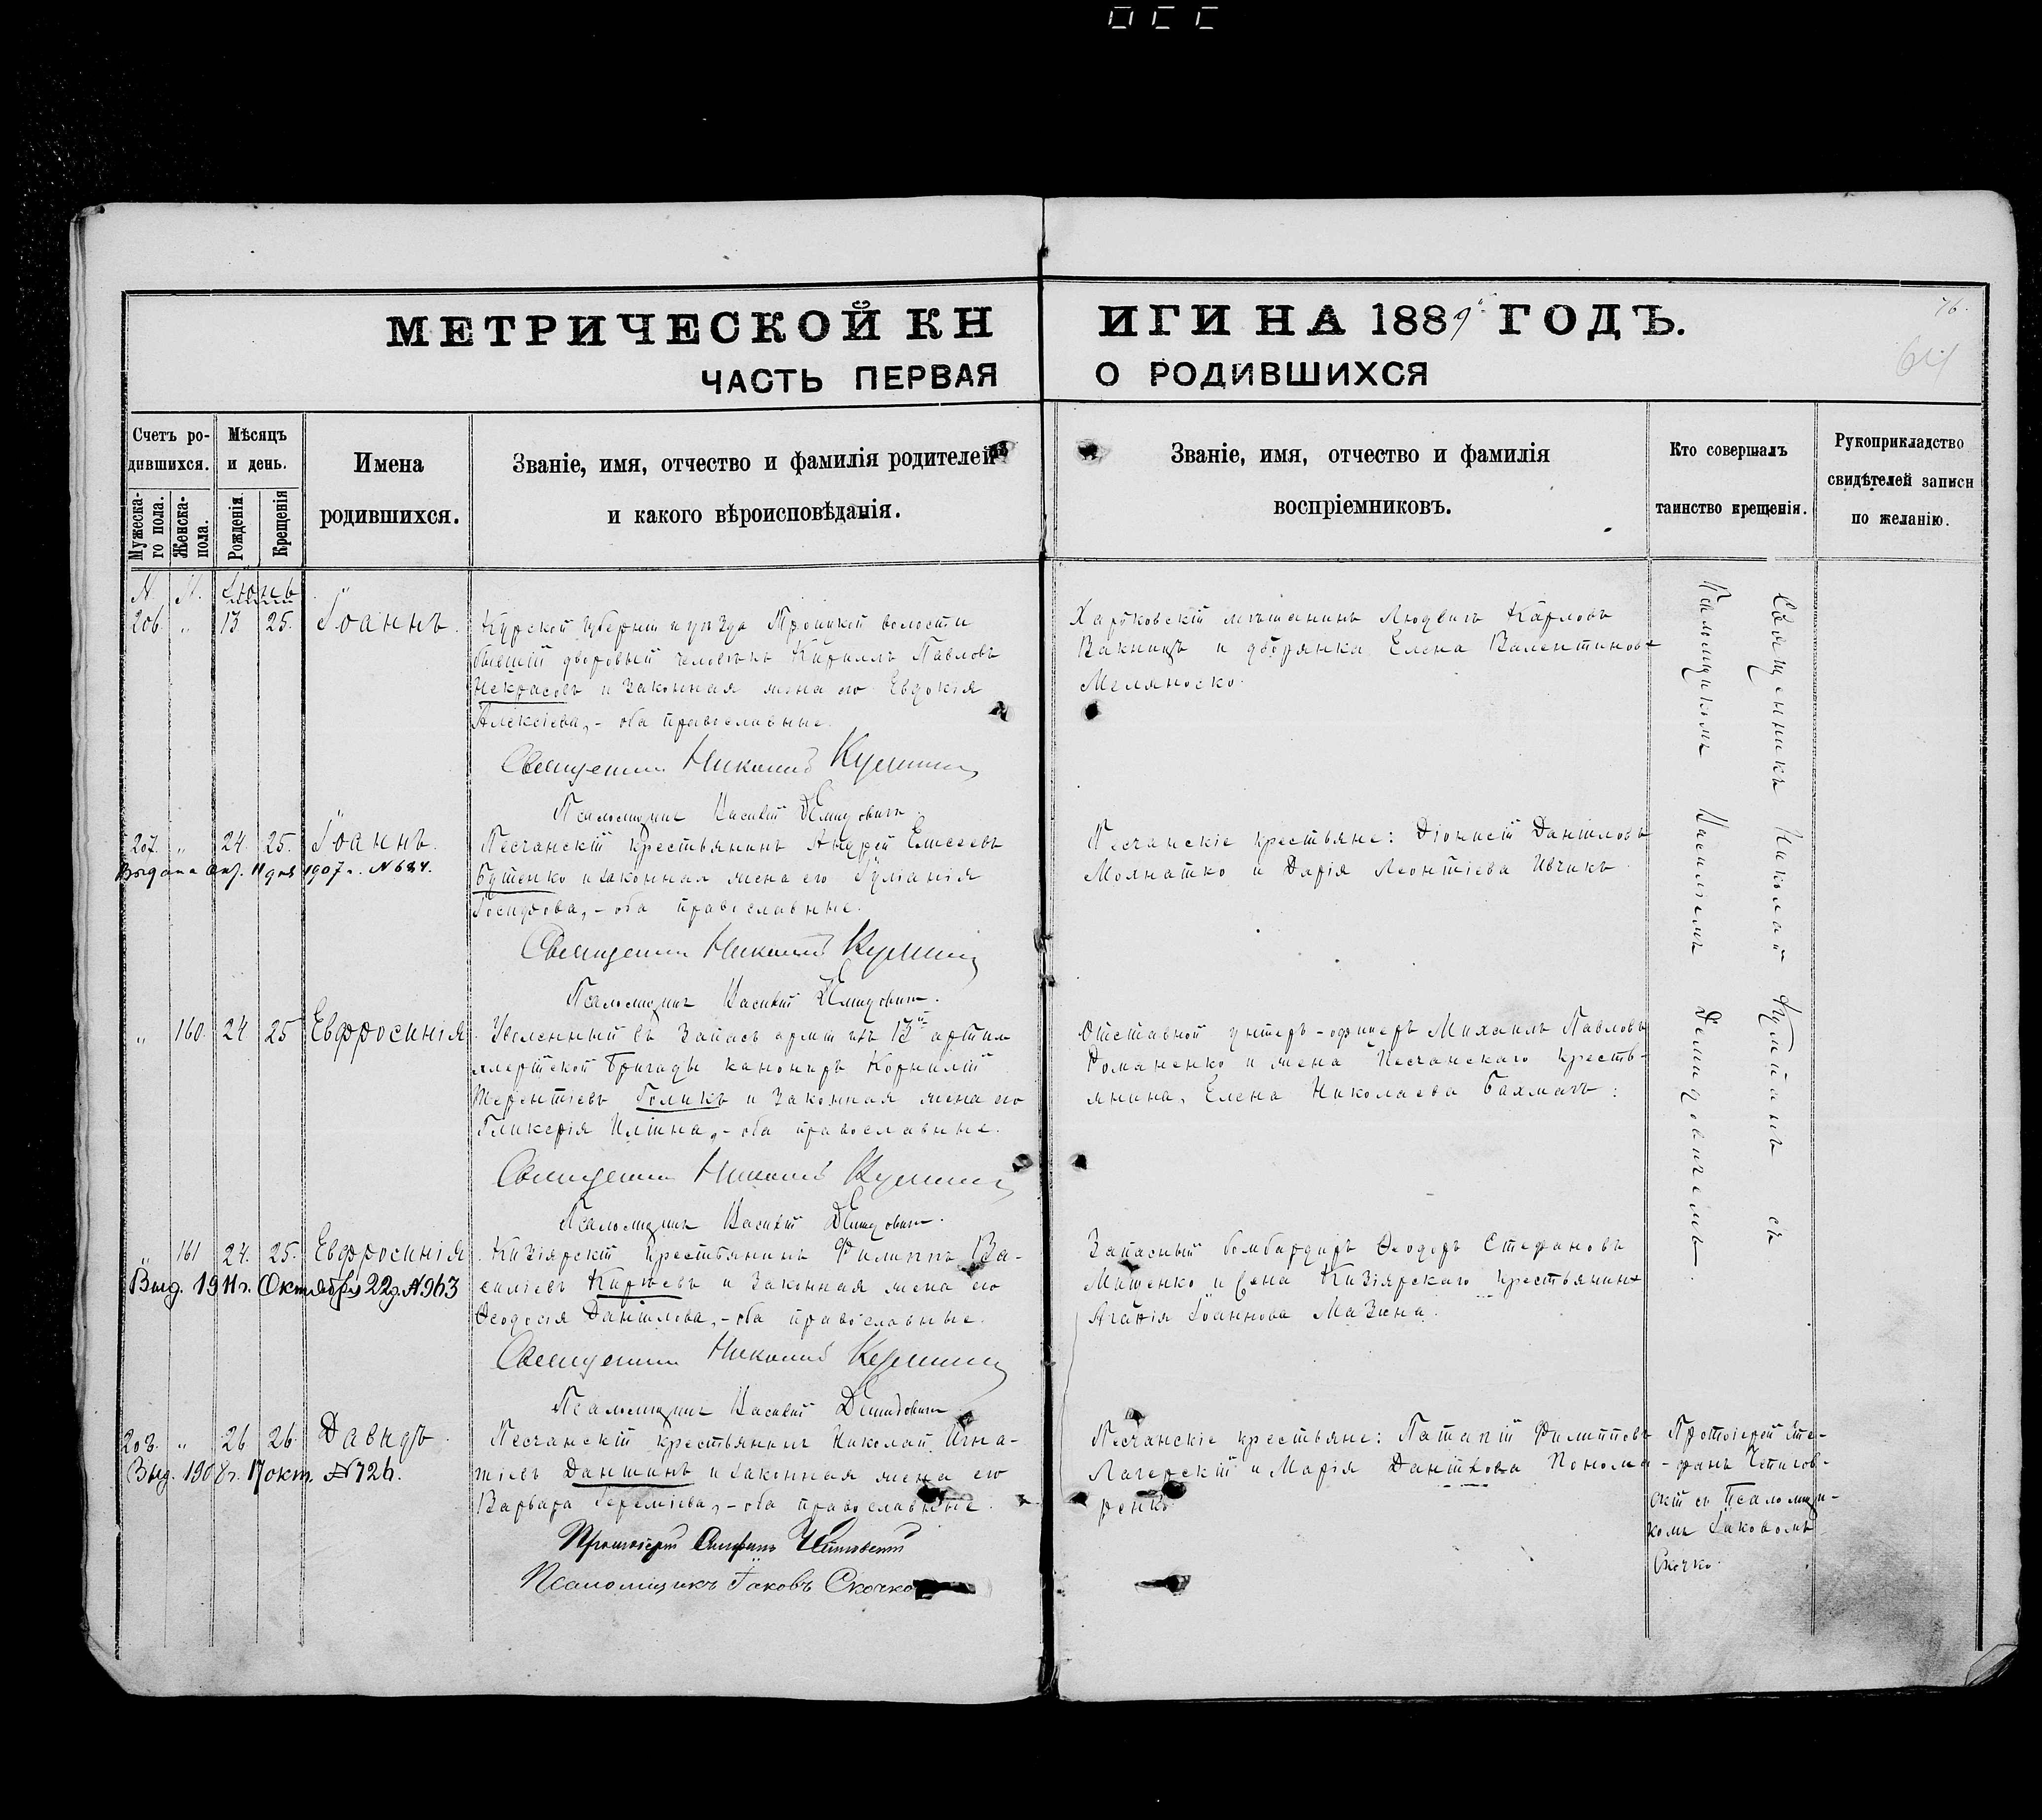 МЕТРИЧЕСКОЙ КНИГИ НА 1889 ГОДЪ.
76.
ЧАСТЬ ПЕРВАЯ О РОДИВШИХСЯ
Счетъ родившихся.
Мужескаго пола.
Женска- пола.
Мѣсяцъ и день.
Рожденія.
Крещенія
Имена родившихся.
Званіе, имя, отчество и фамилія родителей
и какого вѣроисповѣданія.
Званіе, имя, отчество и фамилія
воспріемниковъ.
Кто совершалъ
таинство крещенія.
Рукоприкладство
свидѣтелей записи
по желанію.
Іюнь
206. " 13 25. Іоаннъ.
Курской губерніи и уѣзда Троицкой волости
бывшій дворовый человѣкъ Кириллъ Павловъ
Некрасовъ и законная жена его Евдокія
Алексіева, - оба православные.
Священникъ Николай
Псаломщикъ Василій Демидовичъ.
Харьковскій мѣщанинъ Людвигъ Карловъ
и дворянка Елена Валентинова
207. " 24. 25. Іоаннъ.
Выдана 11 дня 1907 г. №684.
Песчанскій крестьянинъ Андрей Елисеевъ
Бутенко и законная жена его Іуліанія
Іосифова, - оба православные.
Священникъ Николай
Псаломщикъ Василій Демидовичъ.
Песчанскіе крестьяне: Діонисій Даніиловъ
Мохнатко и Дарія Леонтіева Ивчикъ
" 160. 24 25 Евфросинія.
Уволенный въ запасъ арміи изъ 13й артил
лерійской бригады канониръ Корнилій
Терентіевъ Голикъ и законная жена его
Гликерія Ильина, - оба православные.
Священникъ Николай
Псаломщикъ Василій Демидовичъ.
Отставной унтеръ-офицеръ Михаилъ Павловъ
Романенко и жена Песчанскаго кресть-
янина, Елена Николаева Бахмачъ:
" 161 24. 25. Евфросинія.
Выд. 1911 г. Октября 22 д. №963
Кизіярскій крестьянинъ Филиппъ Ва-
силіевъ Киржевъ и законная жена его
Ѳеодосія Даніилова, - оба православные.
Священникъ Николай
Псаломщикъ Василій Демидовичъ
Запасный бомбардиръ Ѳеодоръ Стефановъ
Мищенко и жена Кизіярскаго крестьянина
Агафія Іоаннова Мазина.
208. " 26 26 Давидъ.
Выд. 1908 г. 17 окт. №726.
Песчанскій крестьянинъ Николай Игна-
тіевъ Даншинъ и законная жена его
Варвара Іереміева, - оба православные.
Протоіерей Стефанъ
Псаломщикъ Іаковъ Скочко
Песчанскіе крестьяне: Патапій Филипповъ
Лагерскій и Марія Даніилова Понома-
ренко
Священникъ Николай съ
Псаломщикомъ Василіемъ Демидовичемъ.
Протоіерей Сте-
фанъ
скій съ Псаломщи-
комъ Іаковомъ
Скочко.